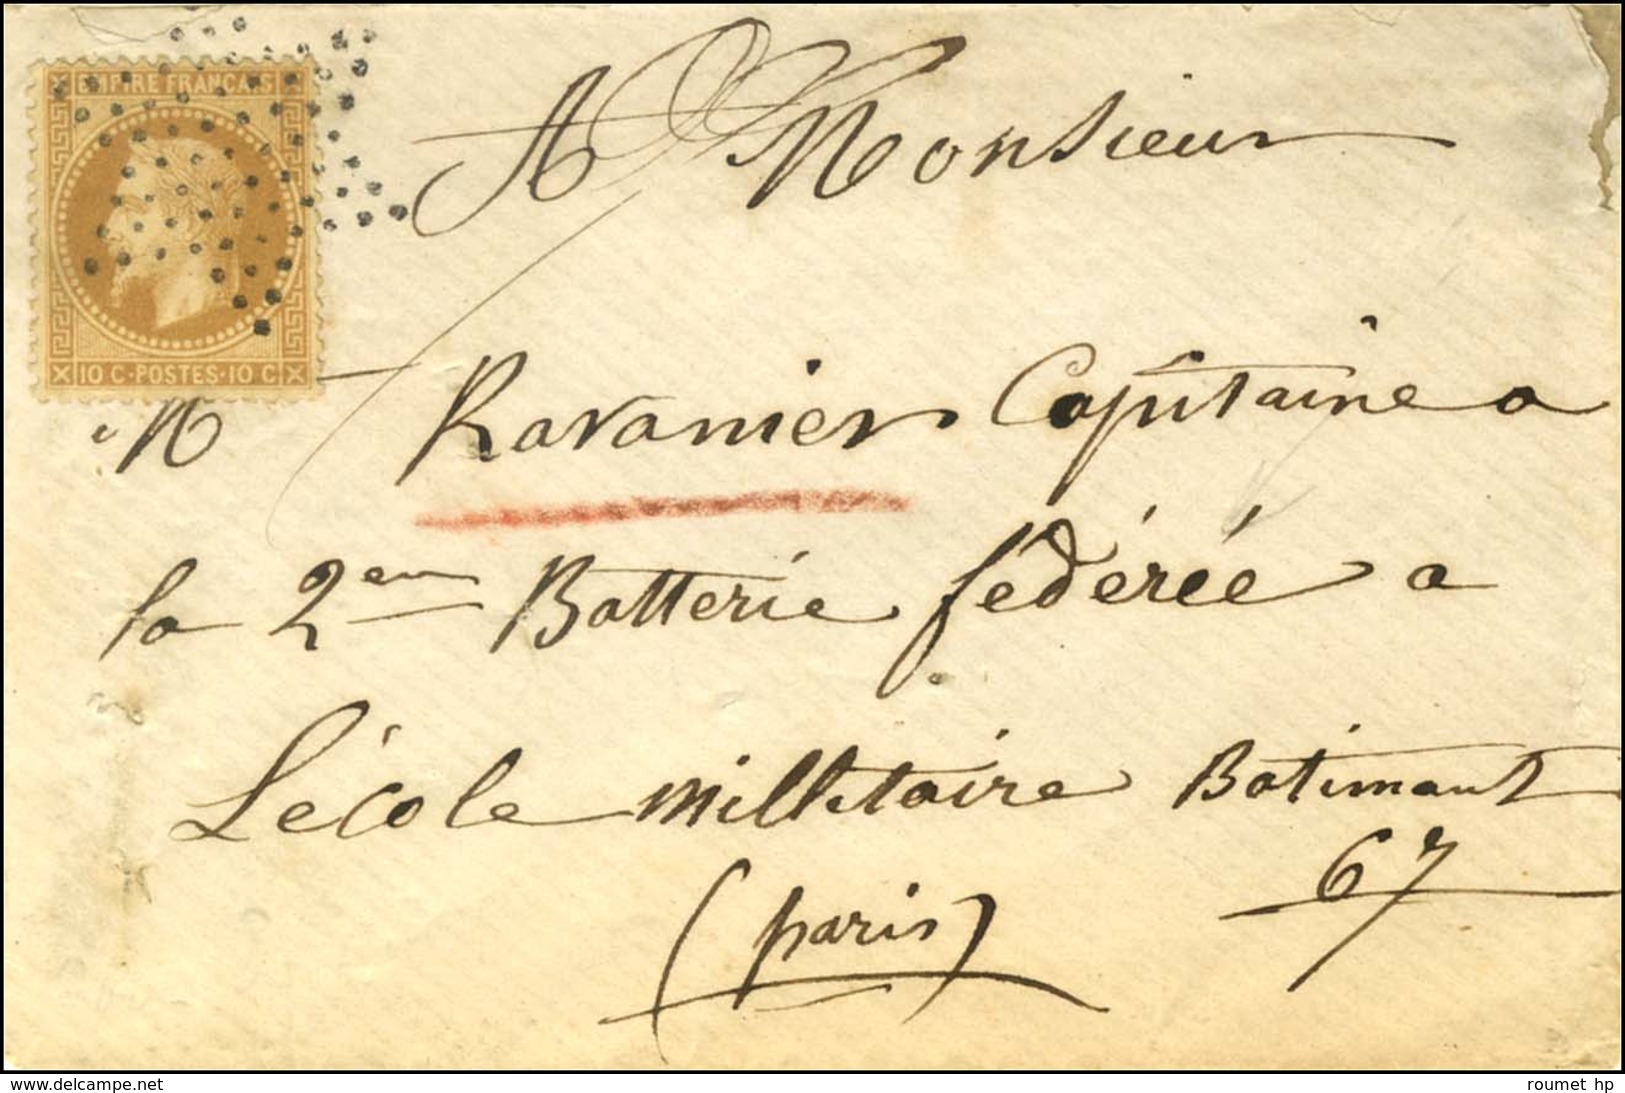 EMPIRE FRANÇAIS
10 C·POSTES·10 C
A Monsieur
M Ravanier Capitaine a
la 2em Batterie fédérée a
L'école milletaire Batimant
67
(paris)
www.delcampe.net
roumet hp